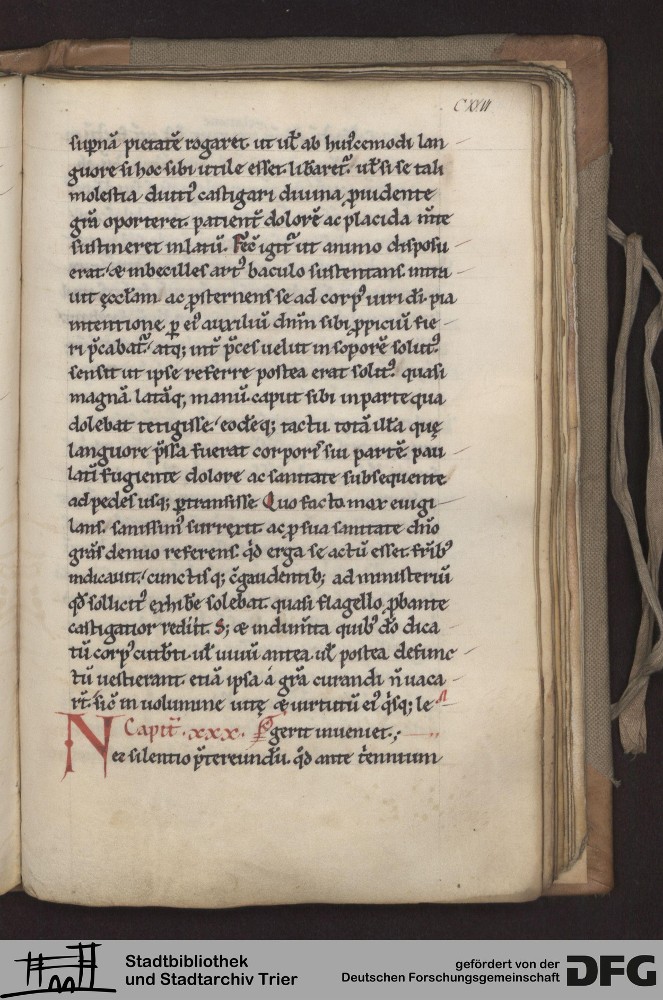 CXVI
supnā pietatē rogaret ut ul̄ ab huꝰcemodi lan
guore si hoc sibi utile esset. lib̄aret᷑. ul̄ si se tali
molestia diutiꝰ castigari diuina ꝓuidente
gr̄a oporteret. patient᷑ dolorē ac placida m̄te
sustineret inlatū. Fec̄ igit᷑ ut animo disposu
erat. ⁊ inbecilles artꝰ baculo sustentans. intra
uit ęccl̄am ac ꝓsternens se ad corpꝰ uiri dī. pia
intentione ꝑ eiꝰ auxiliū dn̄m sibi ꝓpiciū fie
ri p̄cabat᷑. atq; int᷑ p̄ces uelut in soporē solutꝰ.
sensit ut ipse referre postea erat solitꝰ. quasi
magnā latāq; manū. caput sibi in parte qua
dolebat tetigisse. eodēq; tactu totā illa quę
languore p̄ssa fuerat corporis sui partē. pau
lati᷑ fugiente dolore ac sanitate subsequente
ad pedes usq; ꝑtransisse. Quo facto mox euigi
lans. sanissimꝰ surrexit ac ꝓ sua sanitate dn̄o
gr̄as denuo referens. qd̄ erga se actū esset fr̄ibꝰ
indicauit. cunctisq; c̄gaudentib; ad ministeriū
qd̄ sollicitꝰ exhib̄e solebat. quasi flagello ꝓbante
castigatior rediit. S; ⁊ indum̄ta quibꝰ dō dica
tū corpꝰ cuthb̄ti. ul̄ uiuū antea. ul̄ postea defunc
tū uestierant. etiā ipsa a gr̄a curandi n̄ uaca
rt̄. sic̄ in uolumine uitę ⁊ uirtutū eiꝰ qsq; le
Capit᷑. xxx. gerit inueniet.;
Nec silentio p̄tereundū. qd̄ ante t̄ennium
Stadtbibliothek
und Stadtarchiv Trier
gefördert von der
Deutschen Forschungsgemeinschaft
DFG